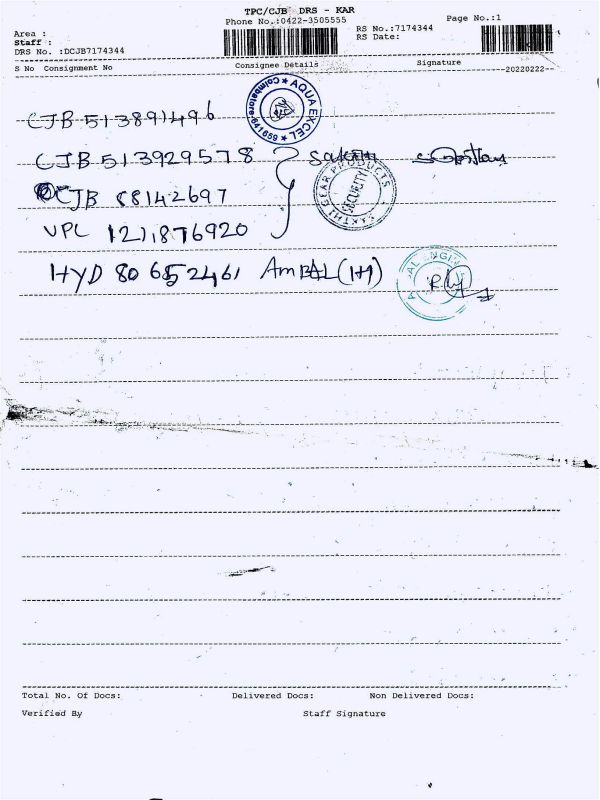 TPC/CJB DRS - KAR
Phone No.:0422-3505555
Page No.:1
Area :
RS No.:7174344
Staff :
RS Date:
DRS No. :DCJB7174344
S No Consignment No Consignee Details Signature
20220222
CJB 513891496
AQUA EXCEL ★ Coimbatore-641659 ★
CJB 513929578
CJB 88142697
GEAR PRODUCTS
SECURITY
VPL 1211876920
HYD 80652461 AMBAL (H)
Total No. Of Docs: Delivered Docs: Non Delivered Docs:
Verified By Staff Signature